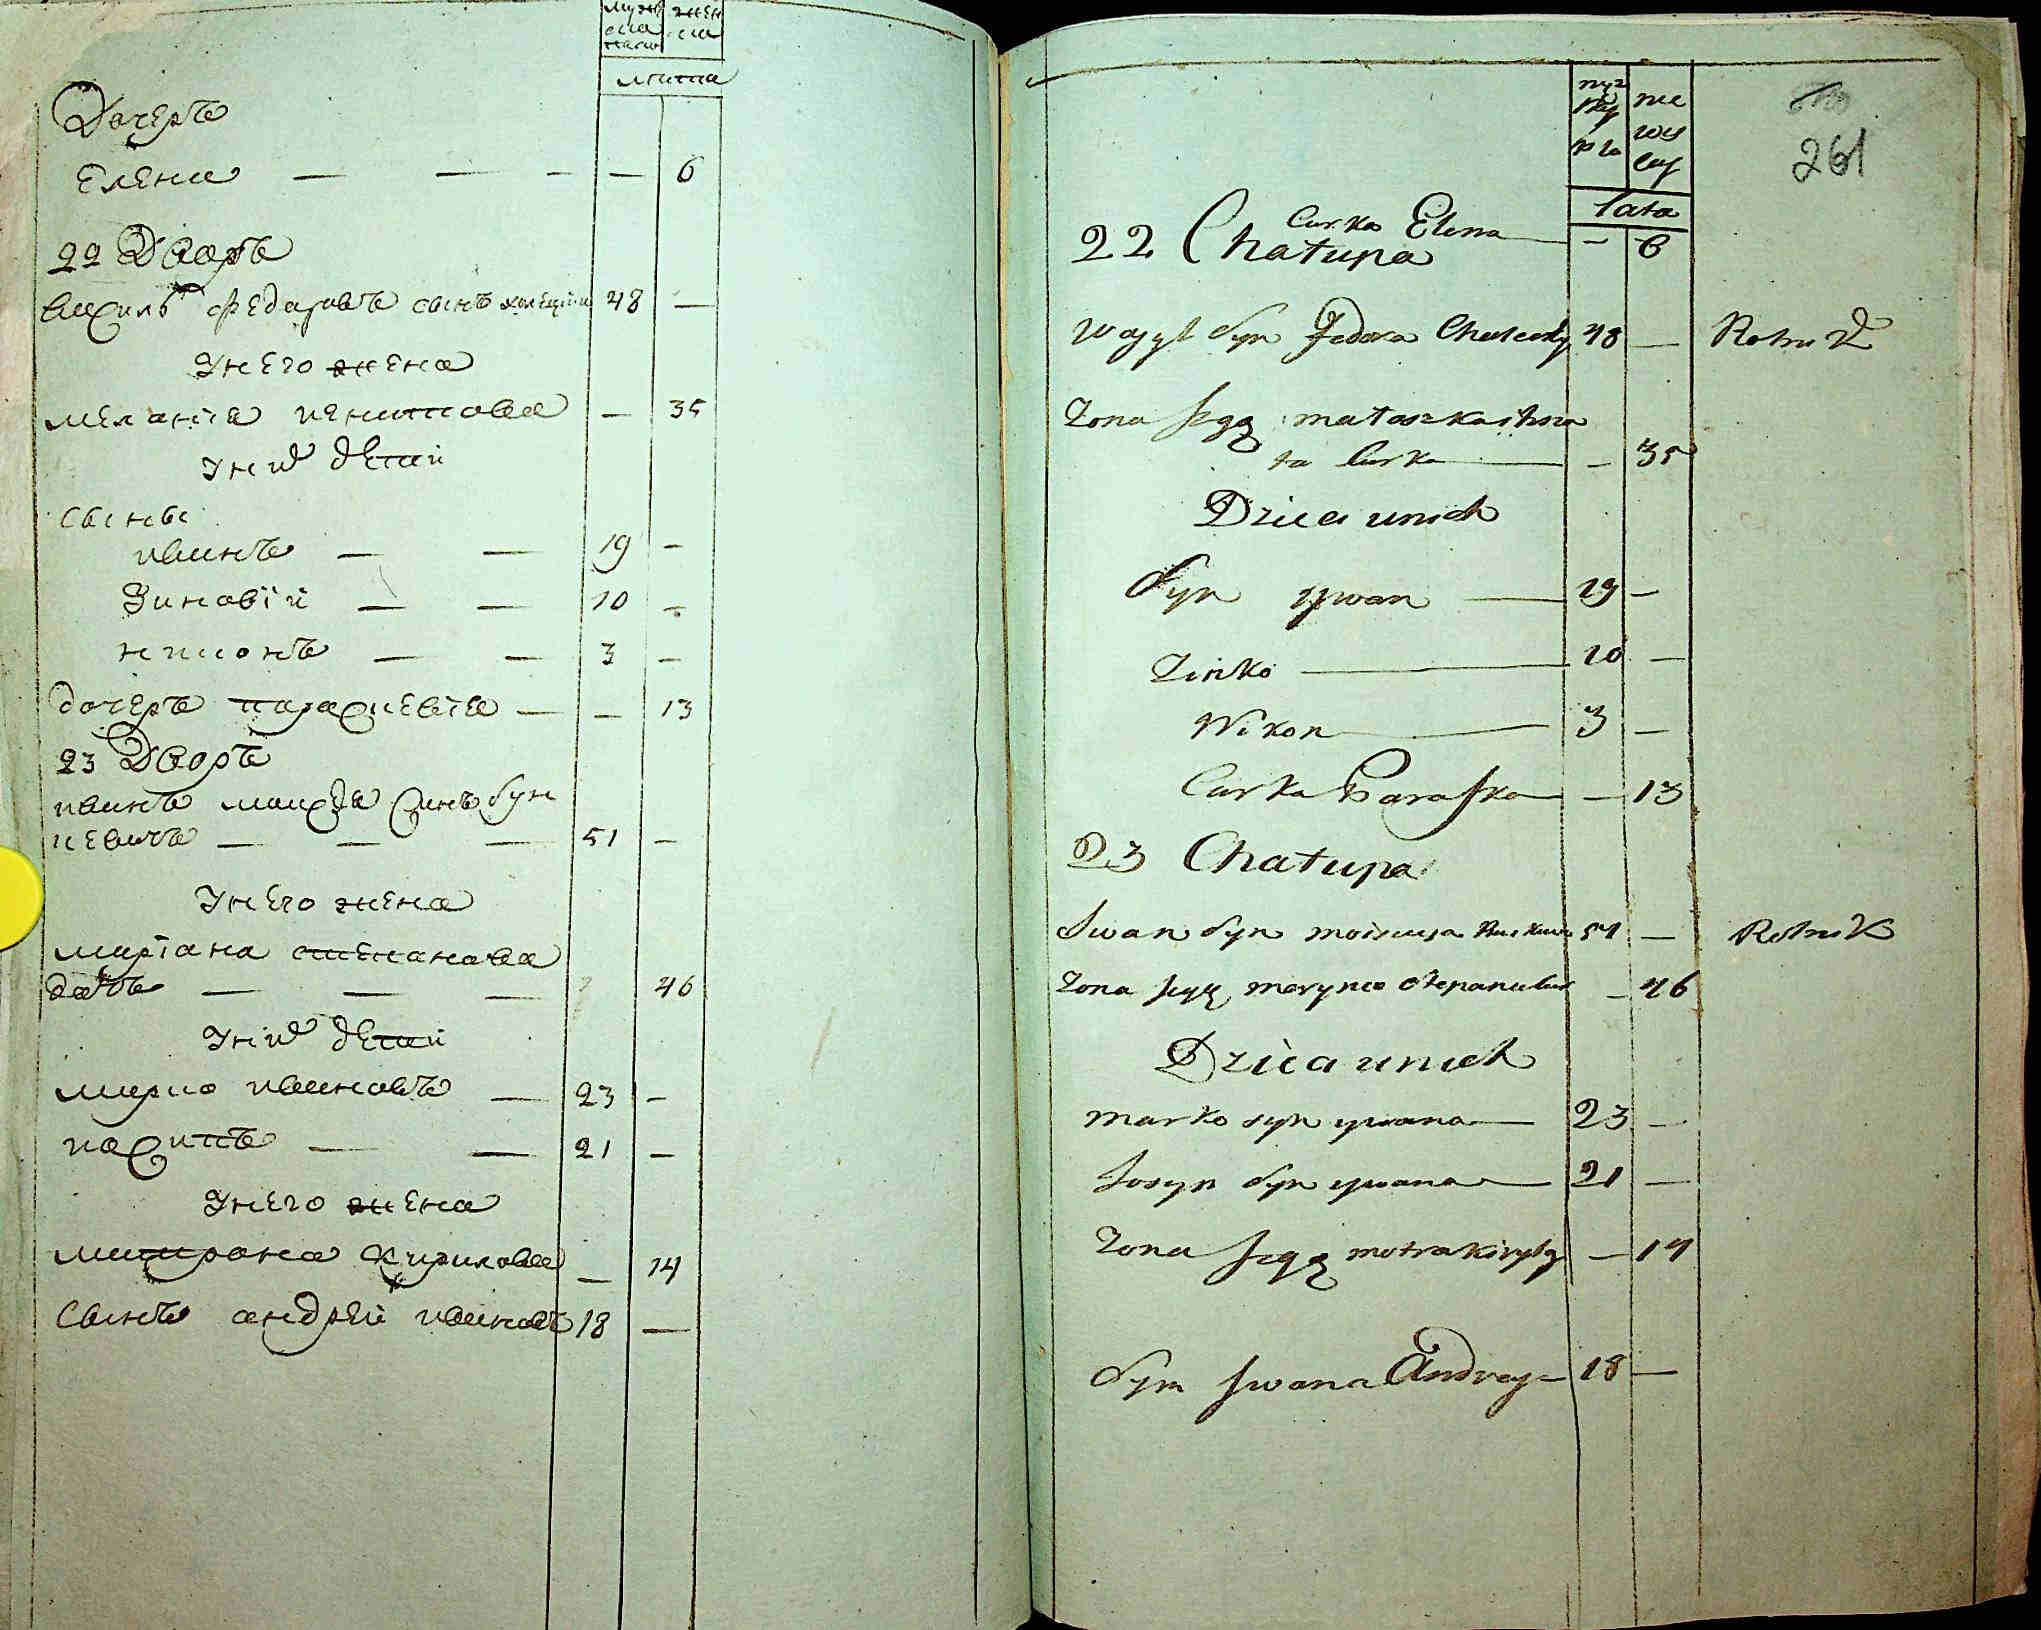 мужеска женска
лѣта
Дочеръ
Елена — — — — 6
22 Дворъ
Василь Федоровъ сынъ 48 —
У него жена
Меланія Никитова — 35
У них дѣтей
Сыны
Иванъ — — 19 —
Зиновій — — 10 —
Никонъ — — 3 —
дочеръ Параскевія — — 13
23 Дворъ
Иванъ Моисея синъ Бун
кевичъ — — — 51 —
У него жена
Маріана Степанова
дочъ — — — 46
У них дѣтей
Марко Ивановъ — 23 —
Иосипъ — — 21 —
У него жена
Митрона Кирилова — 14
Сынъ Андрей Ивановъ 18 —
261
lata
Curka Elena — — 6
22 Chałupa
Wasyl Syn Fedora 48 — Rolnik
Żona Jego
ta Curka — — 35
Dzieci unich
Syn Iwan — 19 —
Zinko — 10 —
Nikon — 3 —
Curka Paraska — — 13
23 Chałupa
Iwan Syn Moisieja 51 — Rolnik
Żona Jego Maryna Stepana Cur — 46
Dzieca unich
Marko syn Iwana — 23 —
Josyp Syn Iwana — 21 —
Żona Jego Motra Kiryły — 14
Syn Iwana Andrey — 18 —